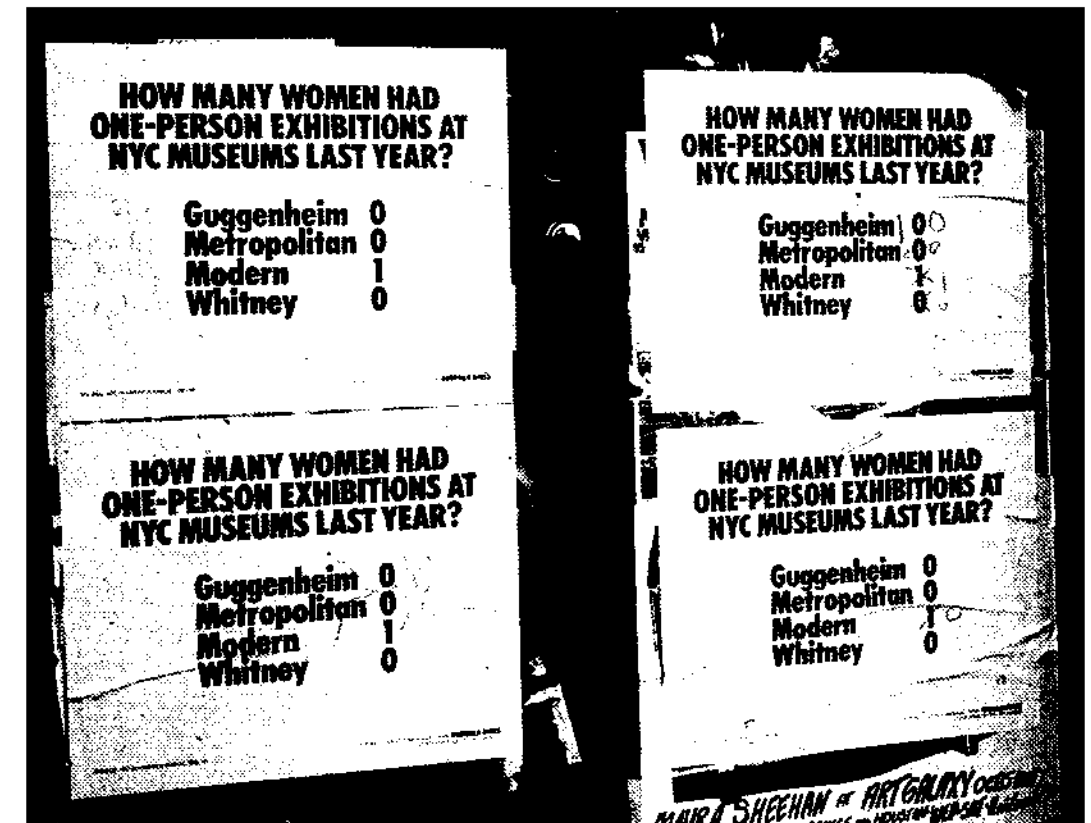 HOW MANY WOMEN HAD
ONE-PERSON EXHIBITIONS AT
NYC MUSEUMS LAST YEAR?
Guggenheim 0
Metropolitan 0
Modern 1
Whitney 0
HOW MANY WOMEN HAD
ONE-PERSON EXHIBITIONS AT
NYC MUSEUMS LAST YEAR?
Guggenheim 0
Metropolitan 0
Modern 1
Whitney 0
HOW MANY WOMEN HAD
ONE-PERSON EXHIBITIONS AT
NYC MUSEUMS LAST YEAR?
Guggenheim 0
Metropolitan 0
Modern 1
Whitney 0
HOW MANY WOMEN HAD
ONE-PERSON EXHIBITIONS AT
NYC MUSEUMS LAST YEAR?
Guggenheim 0
Metropolitan 0
Modern 1
Whitney 0
MAURA SHEEHAN AT ART GALAXY